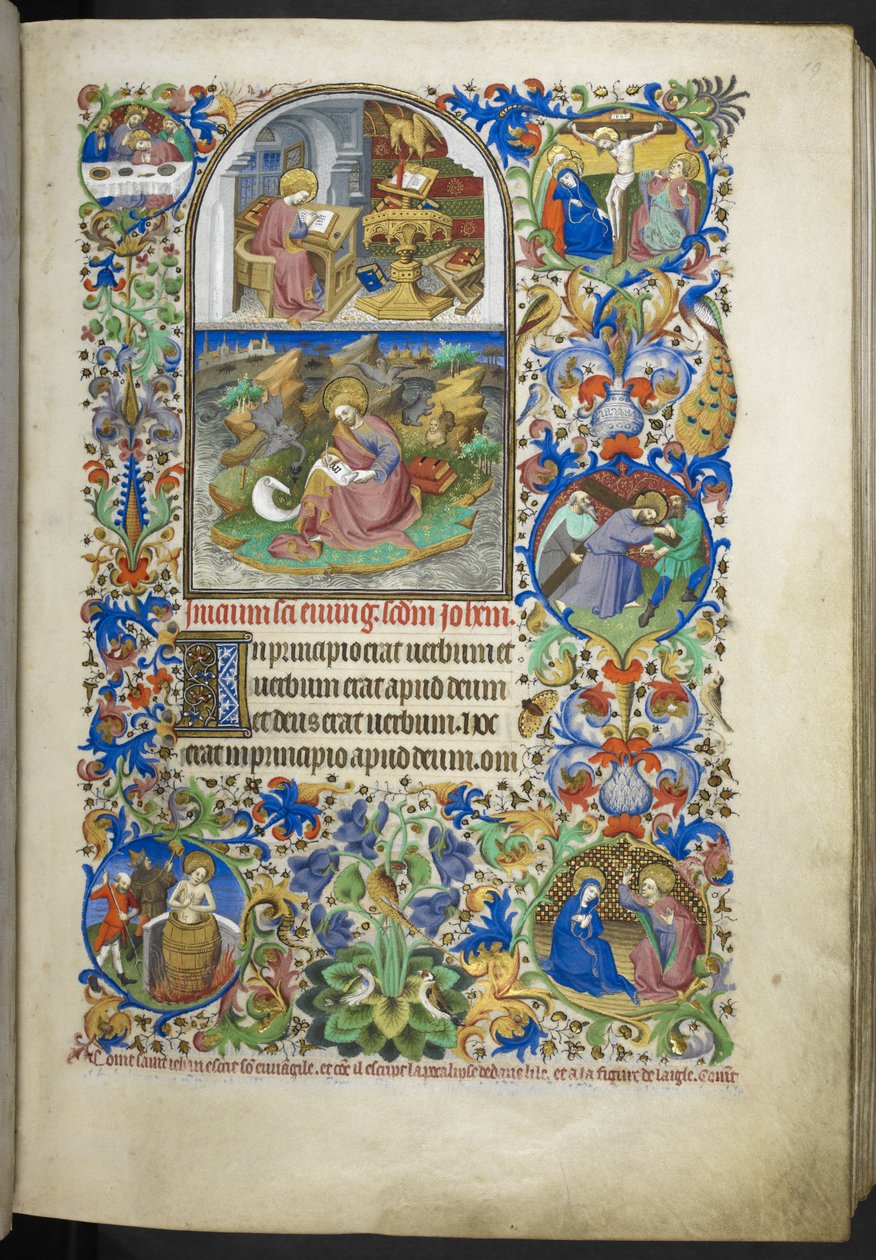 19
INRI
Inicium sci euung. scdm Johem.
In principio erat uerbum et
uerbum erat apud deum
et deus erat uerbum. hoc
erat in principio apud deum. om
Coment saint iehan escrit so euuagile. et coe il escript lapocalipse dedans lile. et a la figure de laigle. Comt